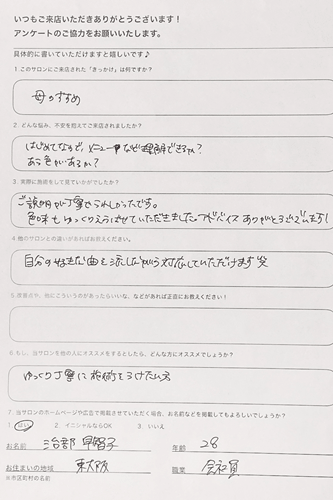 いつもご来店いただきありがとうございます！
アンケートのご協力をお願いいたします。
具体的に書いていただけますと嬉しいです♪
1.このサロンにご来店された「きっかけ」は何ですか？
母のすすめ
2.どんな悩み、不安を抱えてご来店されましたか？
はじめてなので、メニューなど理解できるか？
あう色があるか？
3.実際に施術をして見ていかがでしたか？
ご説明が丁寧でうれしかったです。
色味もゆっくりえらばせていただきました アドバイスありがとうございます！
4.他のサロンとの違いがあればお教えください。
自分の好きな曲を流したり 対応していただけます 笑
などがあれば正直にお教えください！
6.もし、当サロンを他の人にオススメをするとしたら、どんな方にオススメでしょうか？
ゆっくり丁寧に施術をうけたい方
7.当サロンのホームページや広告で掲載させていただく場合、お名前などを掲載してもよろしいでしょうか？
1.はい 2.イニシャルならOK 3.いいえ
お名前 治部 早智子 年齢 28
お住まいの地域 東大阪 職業 会社員
※市区町村の名前